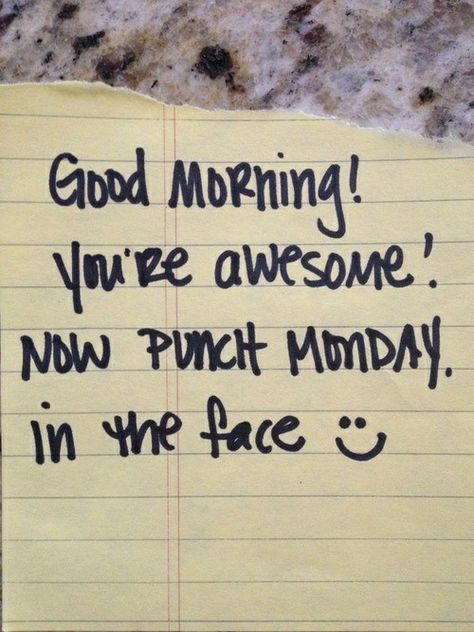 Good Morning!
You're awesome!
Now Punch Monday.
in the face ü